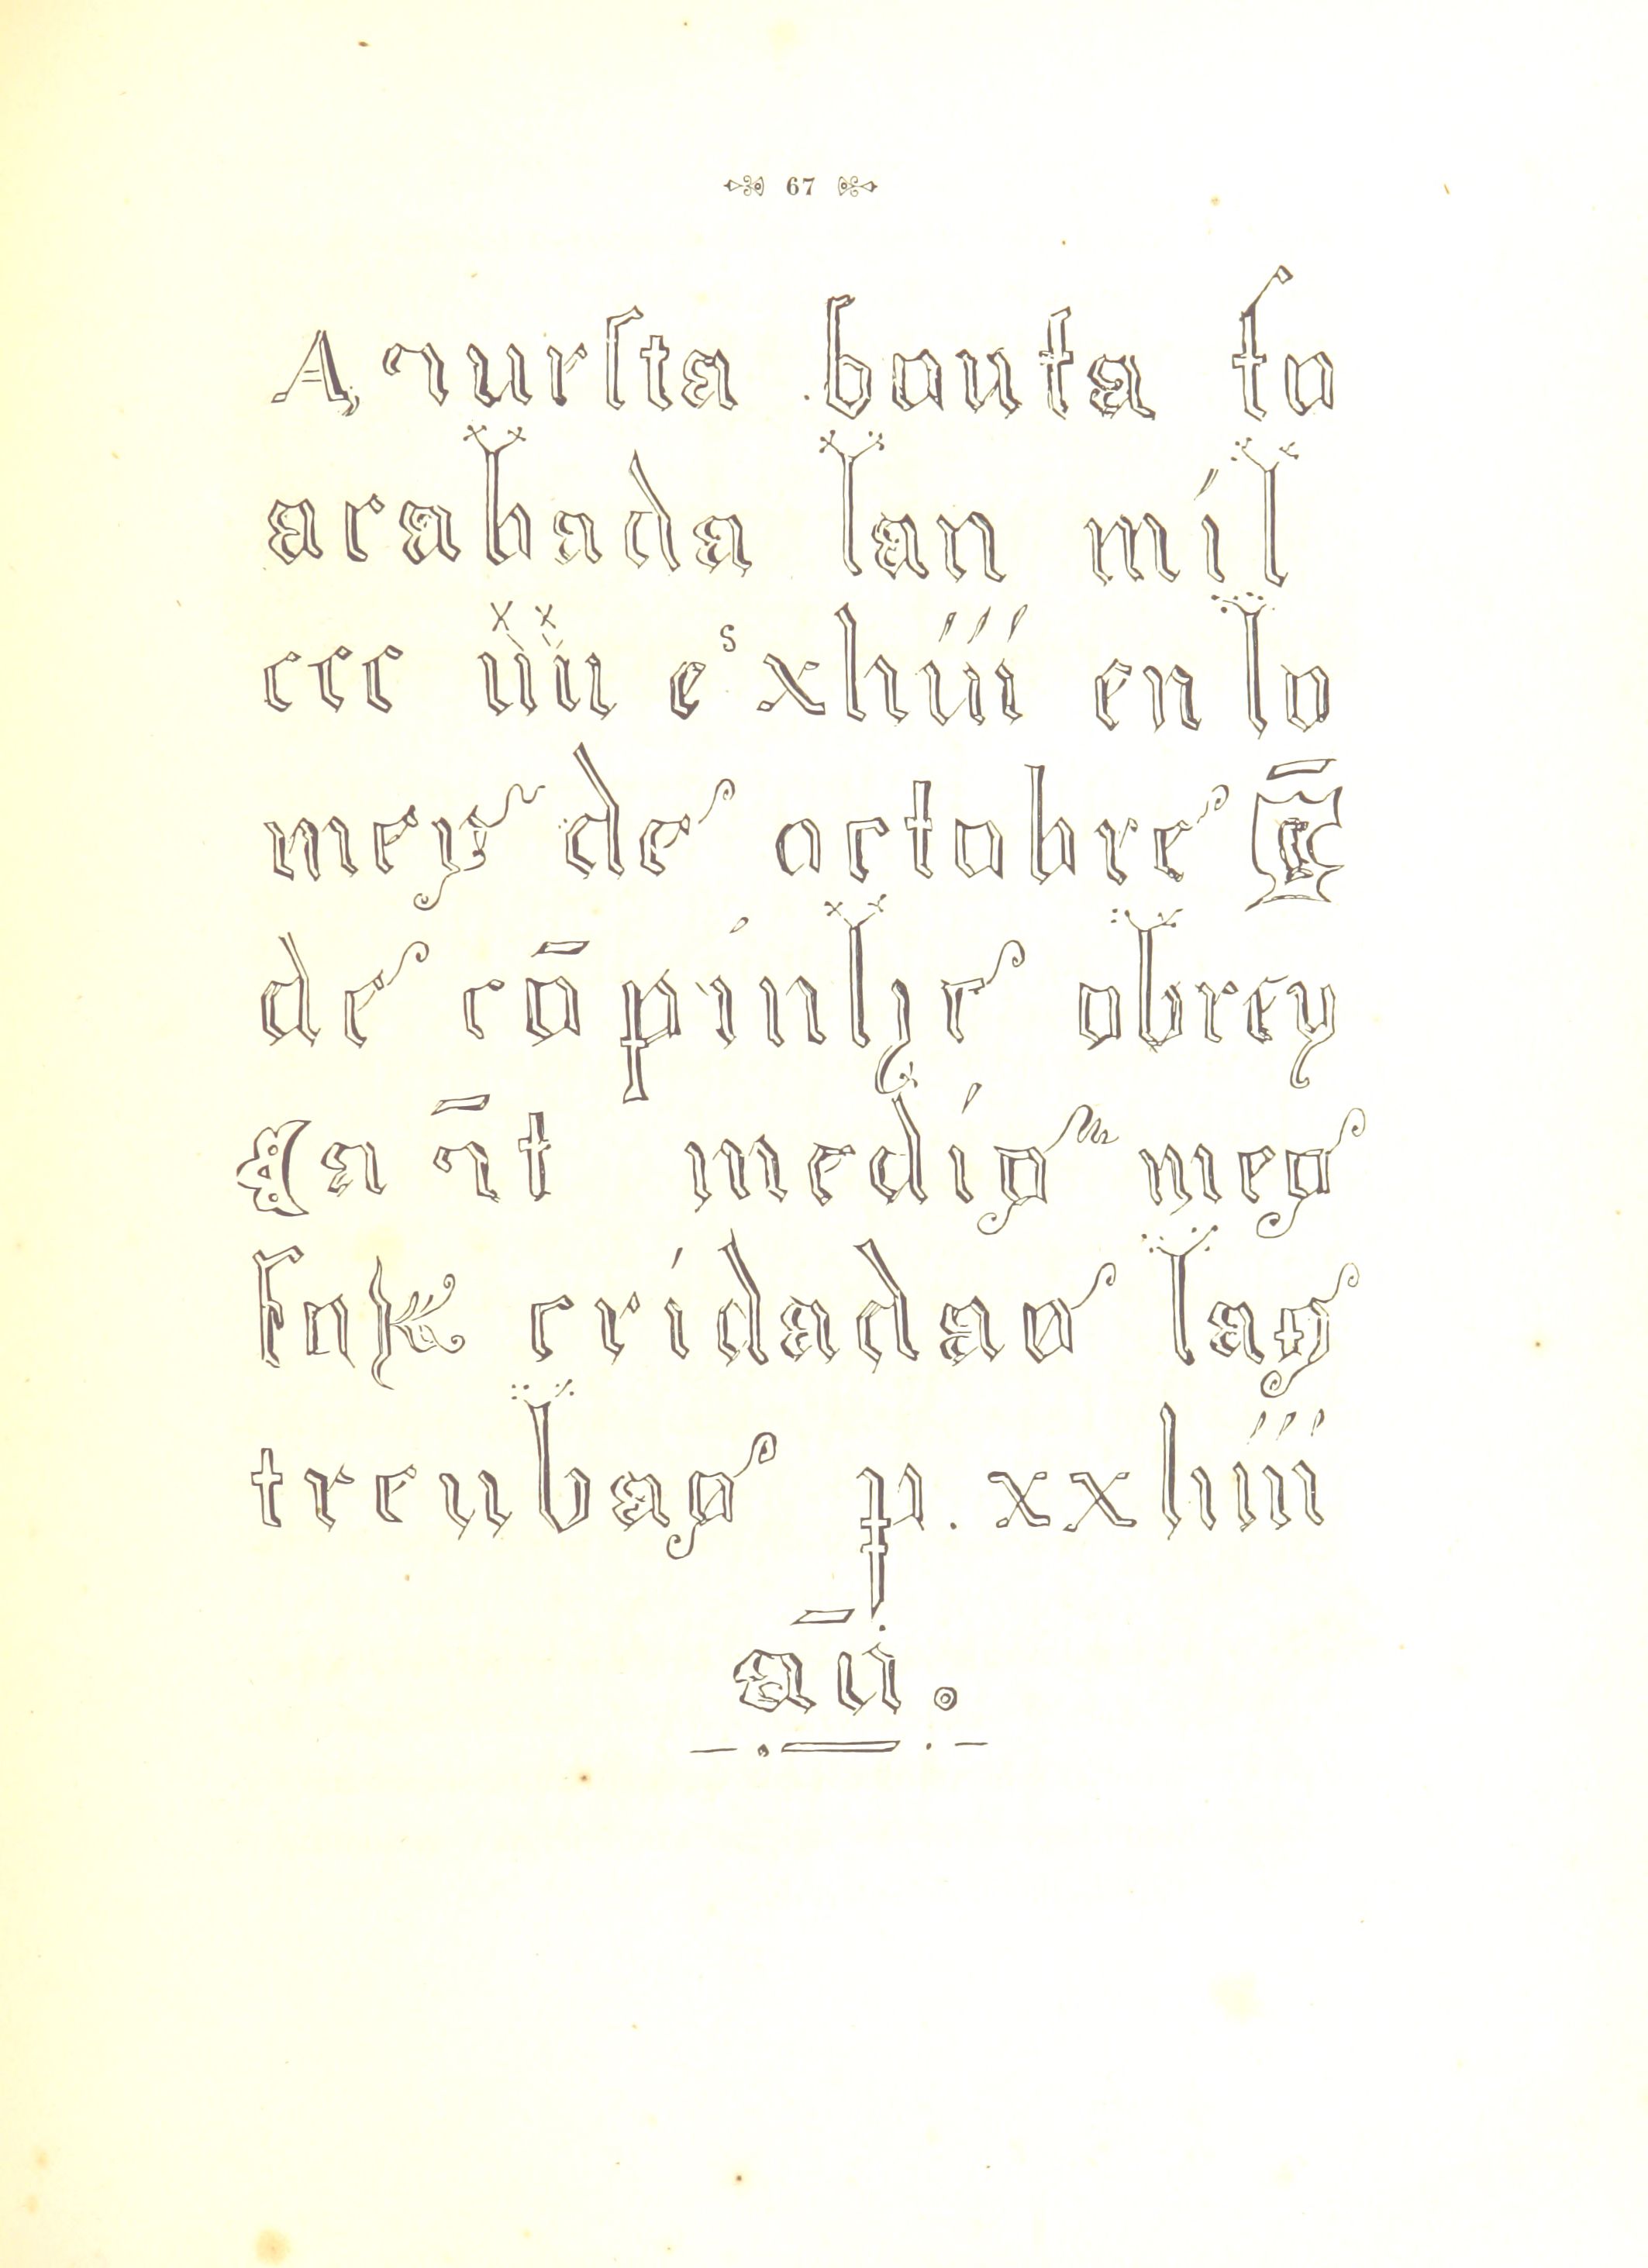 67
Aquesta bouta fo
acabada lan mil
ccc e xliiii en lo
mes de octobre
de cōpinhe obrey
ant medis mes
cridadas las
treubas p. xxliiii
añ.